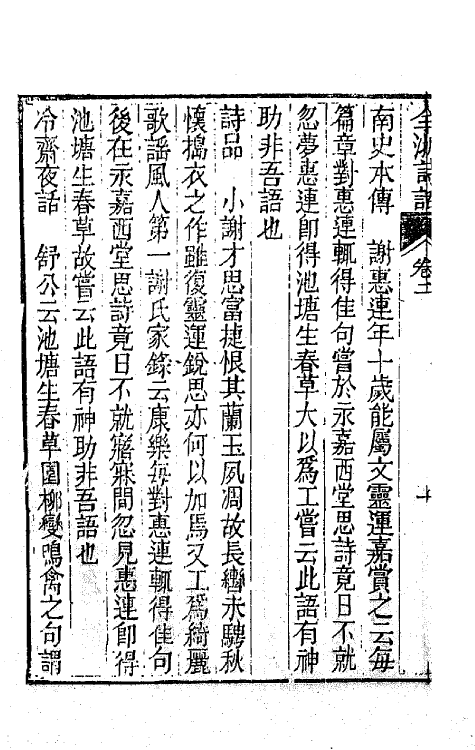 全浙詩話 卷二 十
南史本傳 謝惠連年十歲能屬文靈運嘉賞之云每
篇章對惠連輒得佳句嘗於永嘉西堂思詩竟日不就
忽夢惠連卽得池塘生春草大以爲工嘗云此語有神
助非吾語也
詩品 小謝才思富捷恨其蘭玉夙凋故長轡未騁秋
懷擣衣之作雖復靈運銳思亦何以加焉又工爲綺麗
歌謠風人第一謝氏家錄云康樂每對惠連輒得佳句
後在永嘉西堂思詩竟日不就寤寐間忽見惠連卽得
池塘生春草故嘗云此語有神助非吾語也
冷齋夜話 舒公云池塘生春草園柳變鳴禽之句謂